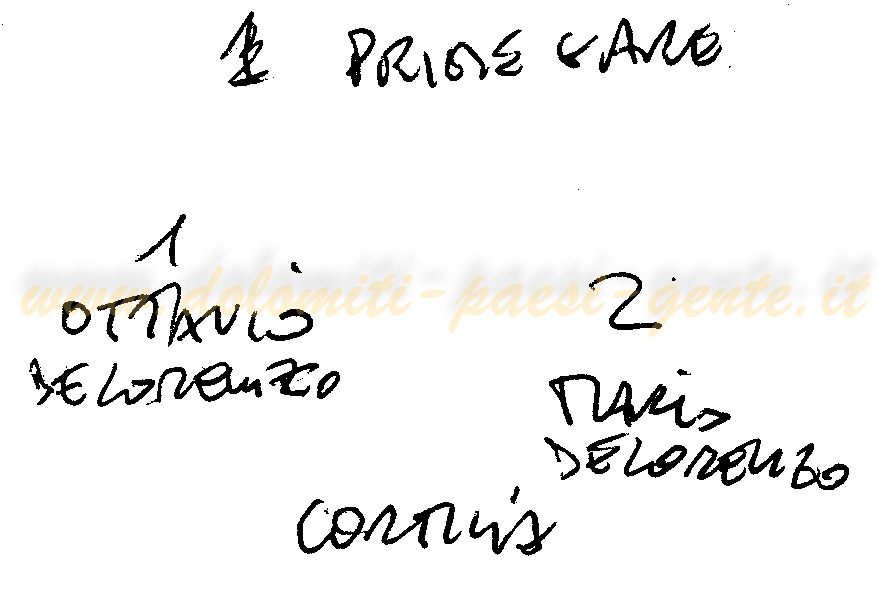 PRIME GARE
1
OTTAVIO
DELORENZO
2
MARIO
DELORENZO
CORTINA
www.dolomiti-paesi-gente.it